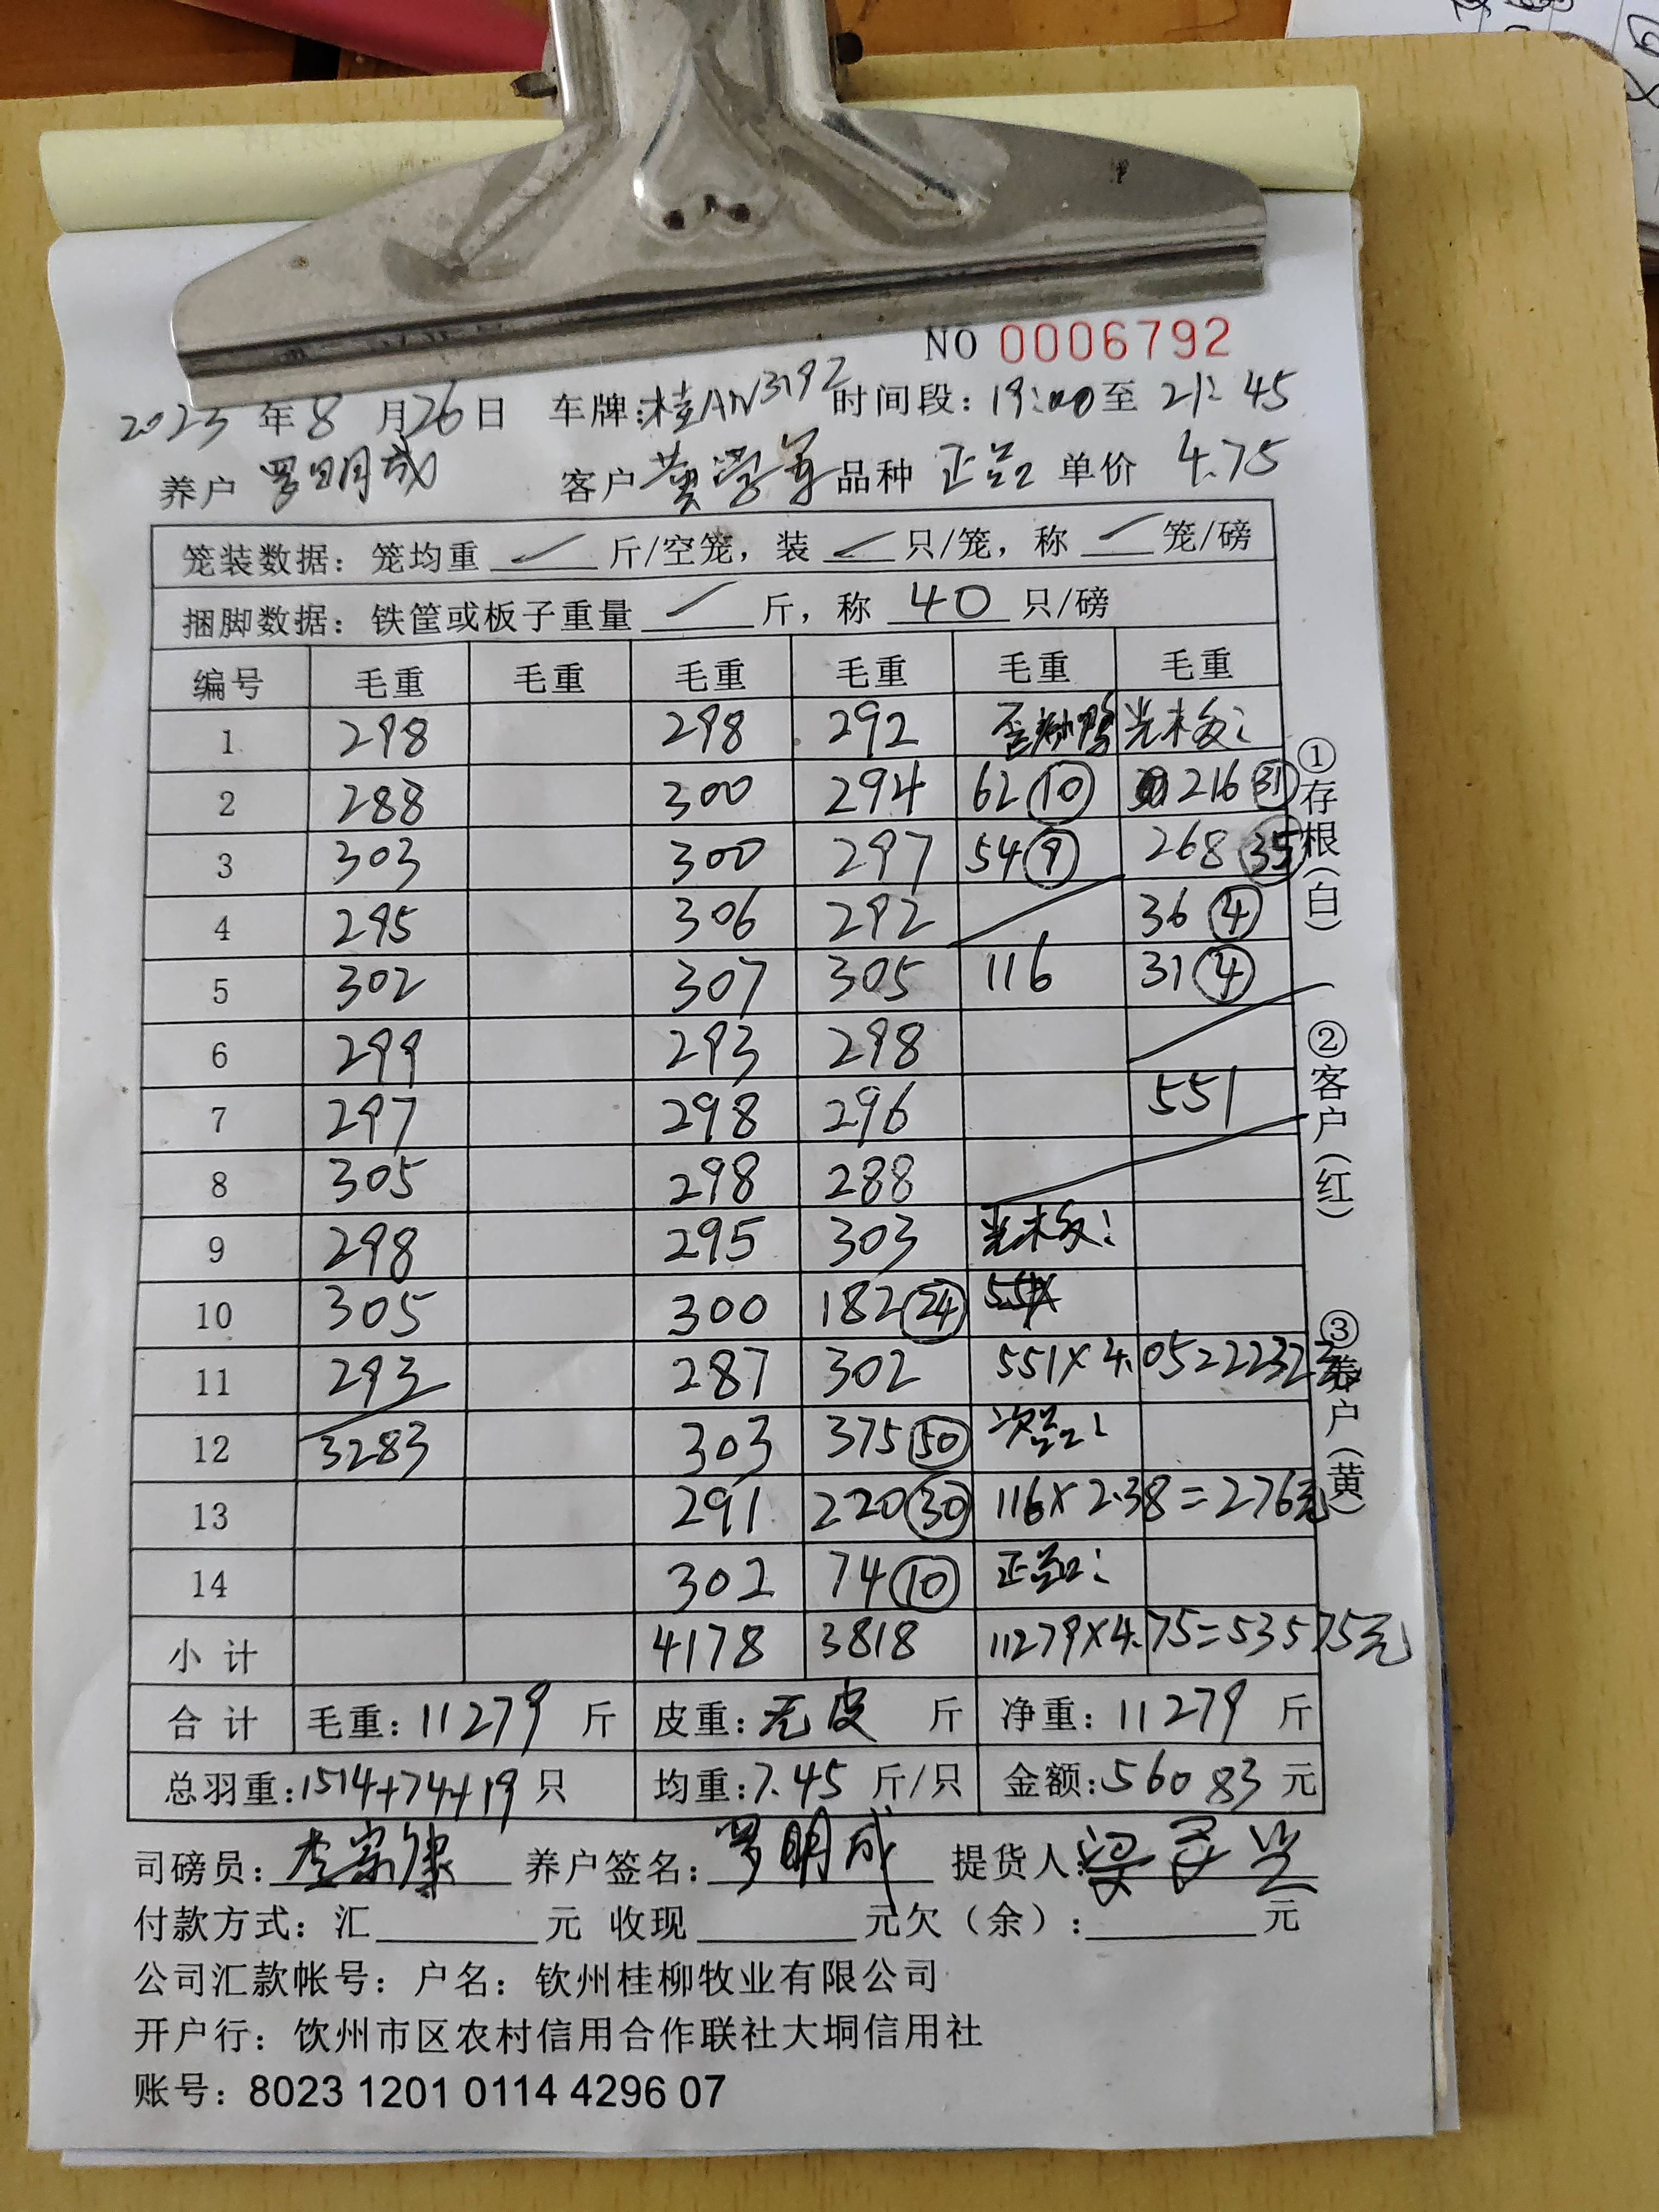 NO 0006792
2023年8月26日 车牌:桂AN3192 时间段:19:00至21:45
养户 罗明成 客户 黄学军 品种 正品 单价 4.75
笼装数据:笼均重 斤/空笼,装 只/笼,称 笼/磅
捆脚数据:铁筐或板子重量 斤,称 40 只/磅
编号 毛重 毛重 毛重 毛重 毛重 毛重
1 298 298 292
2 288 300 294 62⑩ 216㉛
3 303 300 297 54⑨ 268㉟
4 295 306 292 36④
5 302 307 305 116 31④
6 299 293 298
7 297 298 296 551
8 305 298 288
9 298 295 303
10 305 300 182㉔
11 293 287 302 551×4.05=2232元
12 3283 303 375㊿ 次品:
13 291 220㉚ 116×2.38=276元
14 302 74⑩ 正品:
小计 4178 3818 11279×4.75=53575元
合计 毛重:11279 斤 皮重:无皮 斤 净重:11279 斤
总羽重:1514+74+19 只 均重:7.45 斤/只 金额:56083 元
①存根(白)
②客户(红)
③养户(黄)
司磅员: 养户签名:罗明成 提货人:
付款方式:汇 元 收现 元欠(余): 元
公司汇款帐号:户名:钦州桂柳牧业有限公司
开户行:饮州市区农村信用合作联社大垌信用社
账号:8023 1201 0114 4296 07